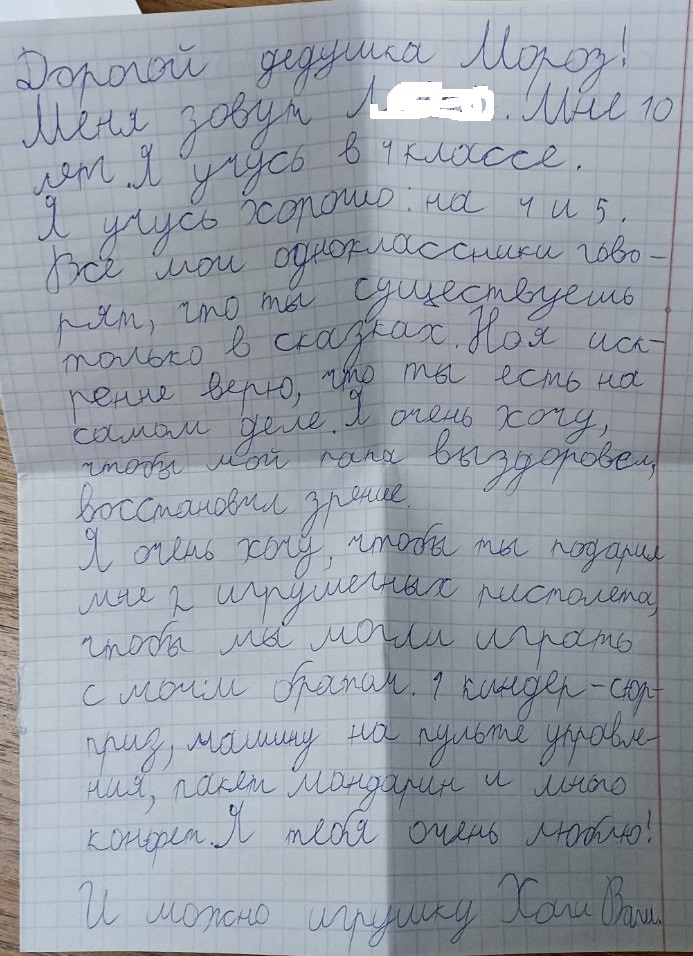 Дорогой дедушка Мороз!
Меня зовут . Мне 10
лет. Я учусь в 4 классе.
Я учусь хорошо: на 4 и 5.
Все мои одноклассники гово-
рят, что ты существуешь
только в сказках. Но я иск-
ренне верю, что ты есть на
самом деле. Я очень хочу,
чтобы мой папа выздоровел,
восстановил зрение.
Я очень хочу, чтобы ты подарил
мне 2 игрушечных пистолета,
чтобы мы могли играть
с моим братом. 1 киндер-сюр-
приз, машину на пульте управле-
ния, пакет мандарин и много
конфет. Я тебя очень люблю!
И можно игрушку Хаги Ваги.